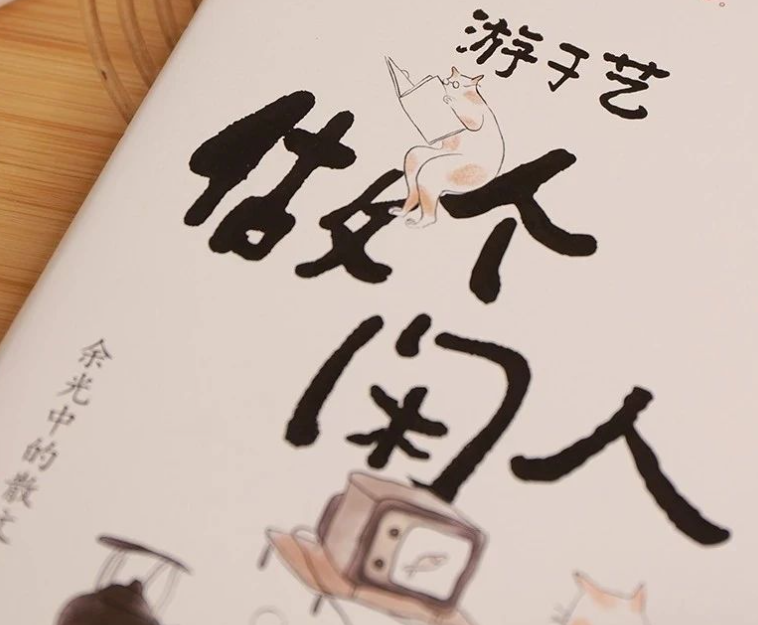 游于艺
做个
闲人
余光中的散文